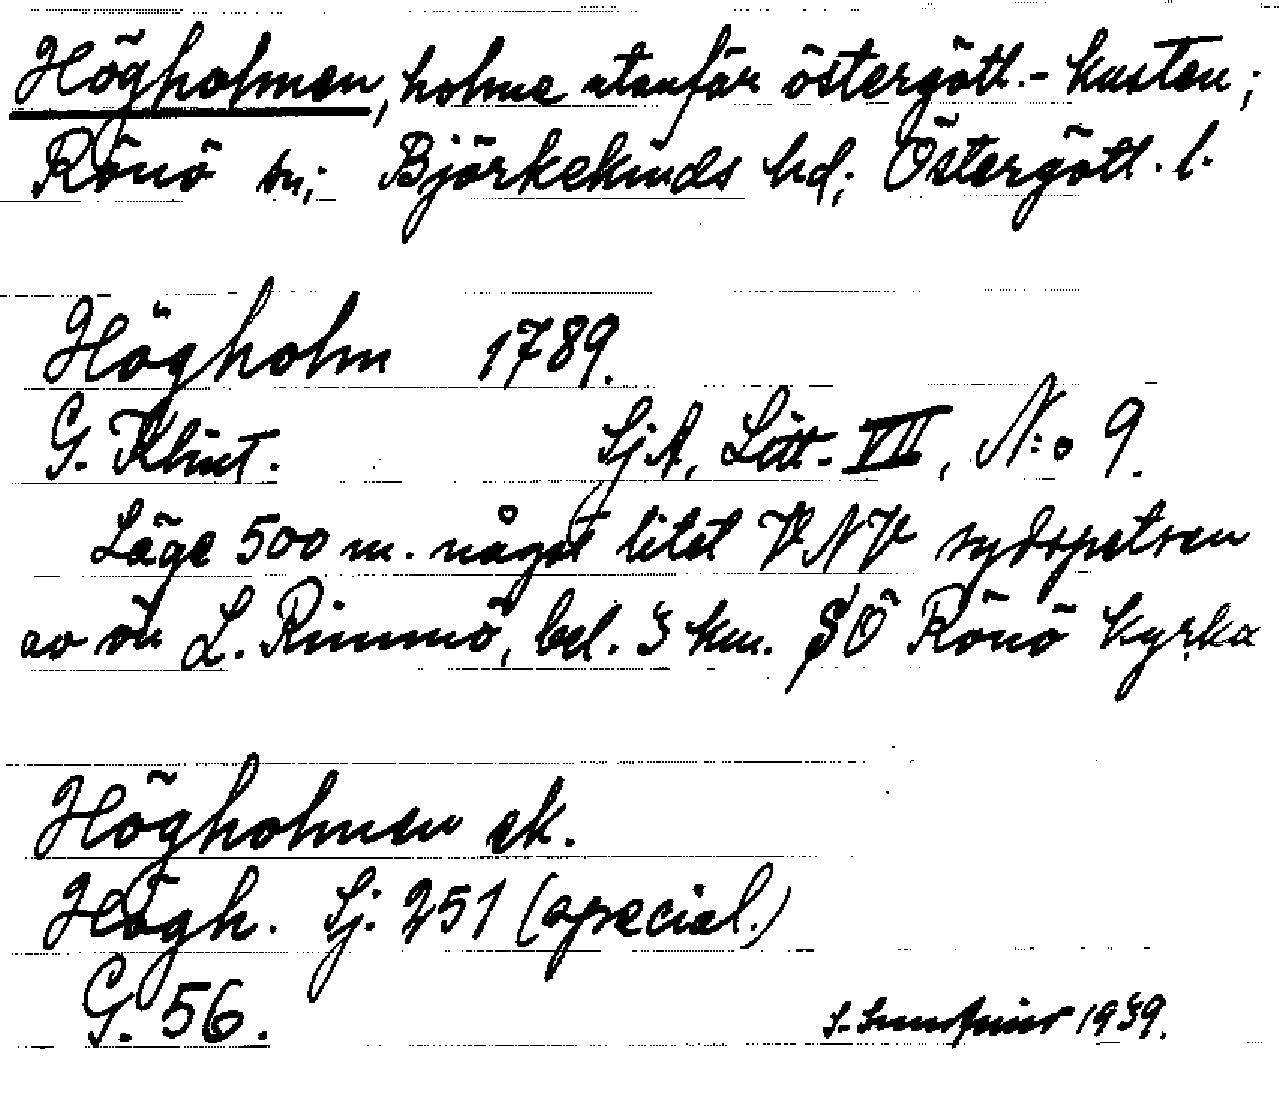 Högholmen, holme utanför östergötl.- kusten;
Rönö sn; Björkekinds hd; Östergötl. l.
Högholm 1789.
G. Klint. SjA, Litt. VII, N:o 9.
Läge 500 m. något litet VNV sydspetsen
av ön L. Rimmö, bel. 3 km. SO Rönö kyrka
Högholmen ek.
Högh. Sj. 251 (special.)
G. 56.
S. 1939.